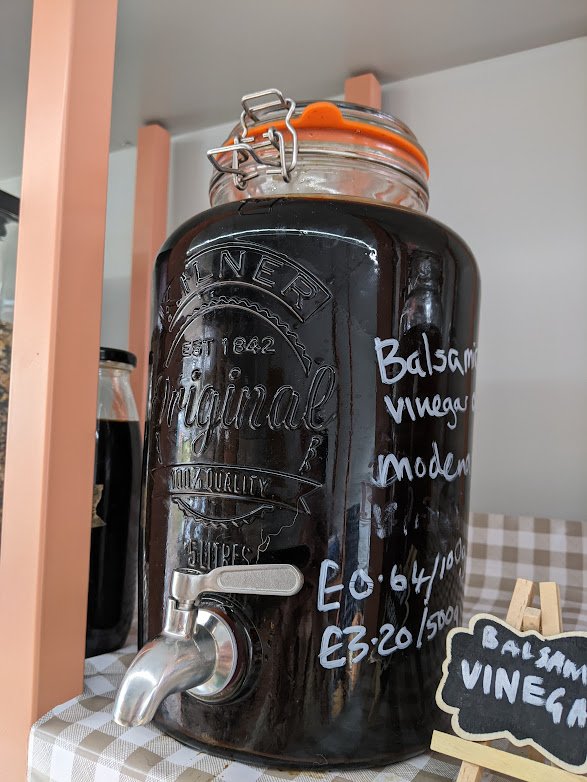 KILNER
EST 1842
Original
100% QUALITY
5 LITRES
Balsami
vinegar
modena
£0.64/100g
£3.20/500g
BALSAM
VINEGA